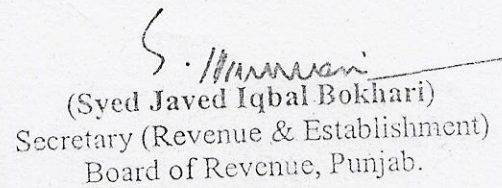 (Syed Javed Iqbal Bokhari)
Secretary (Revenue & Establishment)
Board of Revenue, Punjab.